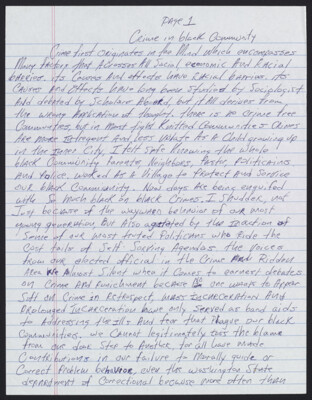 PAGE 1
Crime in black Community
Crime first originates in the Mind which encompasses
Many factors that Accesses All Social economic And Racial
barriers. its Causes And effects have Racial barrier. its
Causes And effects have long been Studied by Sociologist
And debated by Scholars Abroad, but it All derives from
the wrong Application of thought. there is no crime free
Communities, but in most tight Knitted Communities Crimes
Are more Infrequent And less violent. As A Child growing up
in the Inner City I felt safe Knowing the whole
black Community Parents, Neighbors, Pastor, Politicians
And Police, worked As A Village to Protect And Serve
our black Community. Now days Are being engulfed
with So Much black on black Crimes, I Shudder, not
Just because of the wayward behavior of our most
young generation, But Also agitated by the inaction of
Some of our most trusted Politicians who Ride the
Coat tails of Self Serving Agendas. the voices
from our elected official in the Crime And Ridden
Area Are Almost Silent when it comes to earnest debates
on Crime And Punishment because no one want to Appear
Soft on Crime in Retrospect, mass Incarceration And
Prolonged Incarceration have only Served as band aids
to Addressing the ills And fear that Plague our black
Communities. we Cannot legitimately Shift the blame
from our door Step to Another for All have made
Contributions in our failure to Morally guide or
Correct Problem behavior, over the Washington State
department of Correctional because more often than